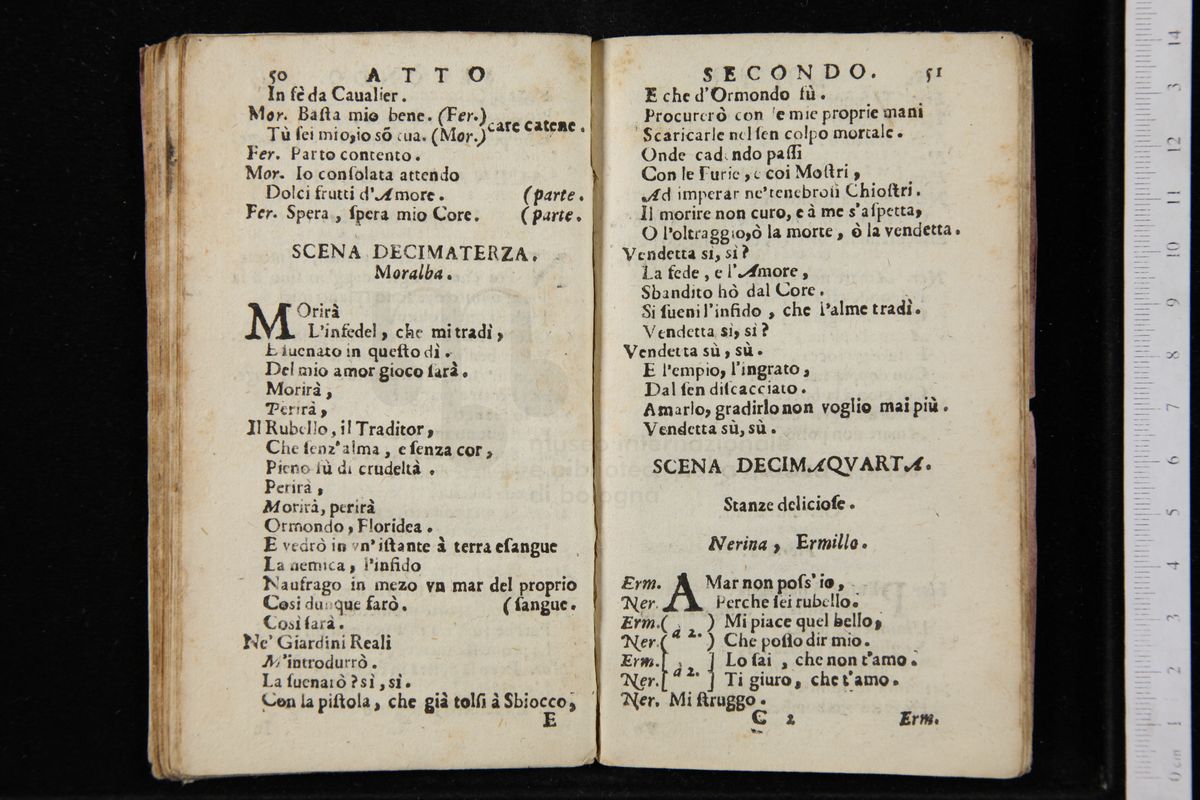 50 ATTO
In fè da Caualier.
Mor. Baſta mio bene. (Fer.)
care catene.
Tù ſei mio, io sõ tua. (Mor.)
Fer. Parto contento.
Mor. Io conſolata attendo
Dolci frutti d'Amore. (parte.
Fer. Spera, ſpera mio Core. (parte.
SCENA DECIMATERZA.
Moralba.
MOrirà
L'infedel, che mi tradì,
E ſuenato in queſto dì.
Del mio amor gioco ſarà.
Morirà,
Perirà,
Il Rubello, il Traditor,
Che ſenz'alma, e ſenza cor,
Pieno fù di crudeltà.
Perirà,
Morirà, perirà
Ormondo, Floridea.
E vedrò in vn'iſtante à terra eſangue
La nemica, l'infido
Naufrago in mezo vn mar del proprio
Cosi dunque farò. (ſangue.
Cosi ſarà.
Ne' Giardini Reali
M'introdurrò.
La ſuenarò? sì, sì.
Con la piſtola, che già tolſi à Sbiocco,
E
SECONDO. 51
E che d'Ormondo fù.
Procurerò con le mie proprie mani
Scaricarle nel ſen colpo mortale.
Onde cadendo paſſi
Con le Furie, e coi Moſtri,
Ad imperar ne' tenebroſi Chioſtri.
Il morire non curo, e à me s'aſpetta,
O l'oltraggio, ò la morte, ò la vendetta.
Vendetta sì, sì?
La fede, e l'Amore,
Sbandito hò dal Core.
Si ſueni l'infido, che l'alme tradì.
Vendetta sì, sì?
Vendetta sù, sù.
E l'empio, l'ingrato,
Dal ſen diſcacciato.
Amarlo, gradirlo non voglio mai più.
Vendetta sù, sù.
SCENA DECIMAQVARTA.
Stanze delicioſe.
Nerina, Ermillo.
Erm. AMar non poſs'io,
Ner. Perche ſei rubello.
Erm.( à 2. ) Mi piace quel bello,
Ner.( ) Che poſſo dir mio.
Erm.[ à 2. ] Lo ſai, che non t'amo.
Ner.[ ] Ti giuro, che t'amo.
Ner. Mi ſtruggo.
C 2 Erm.